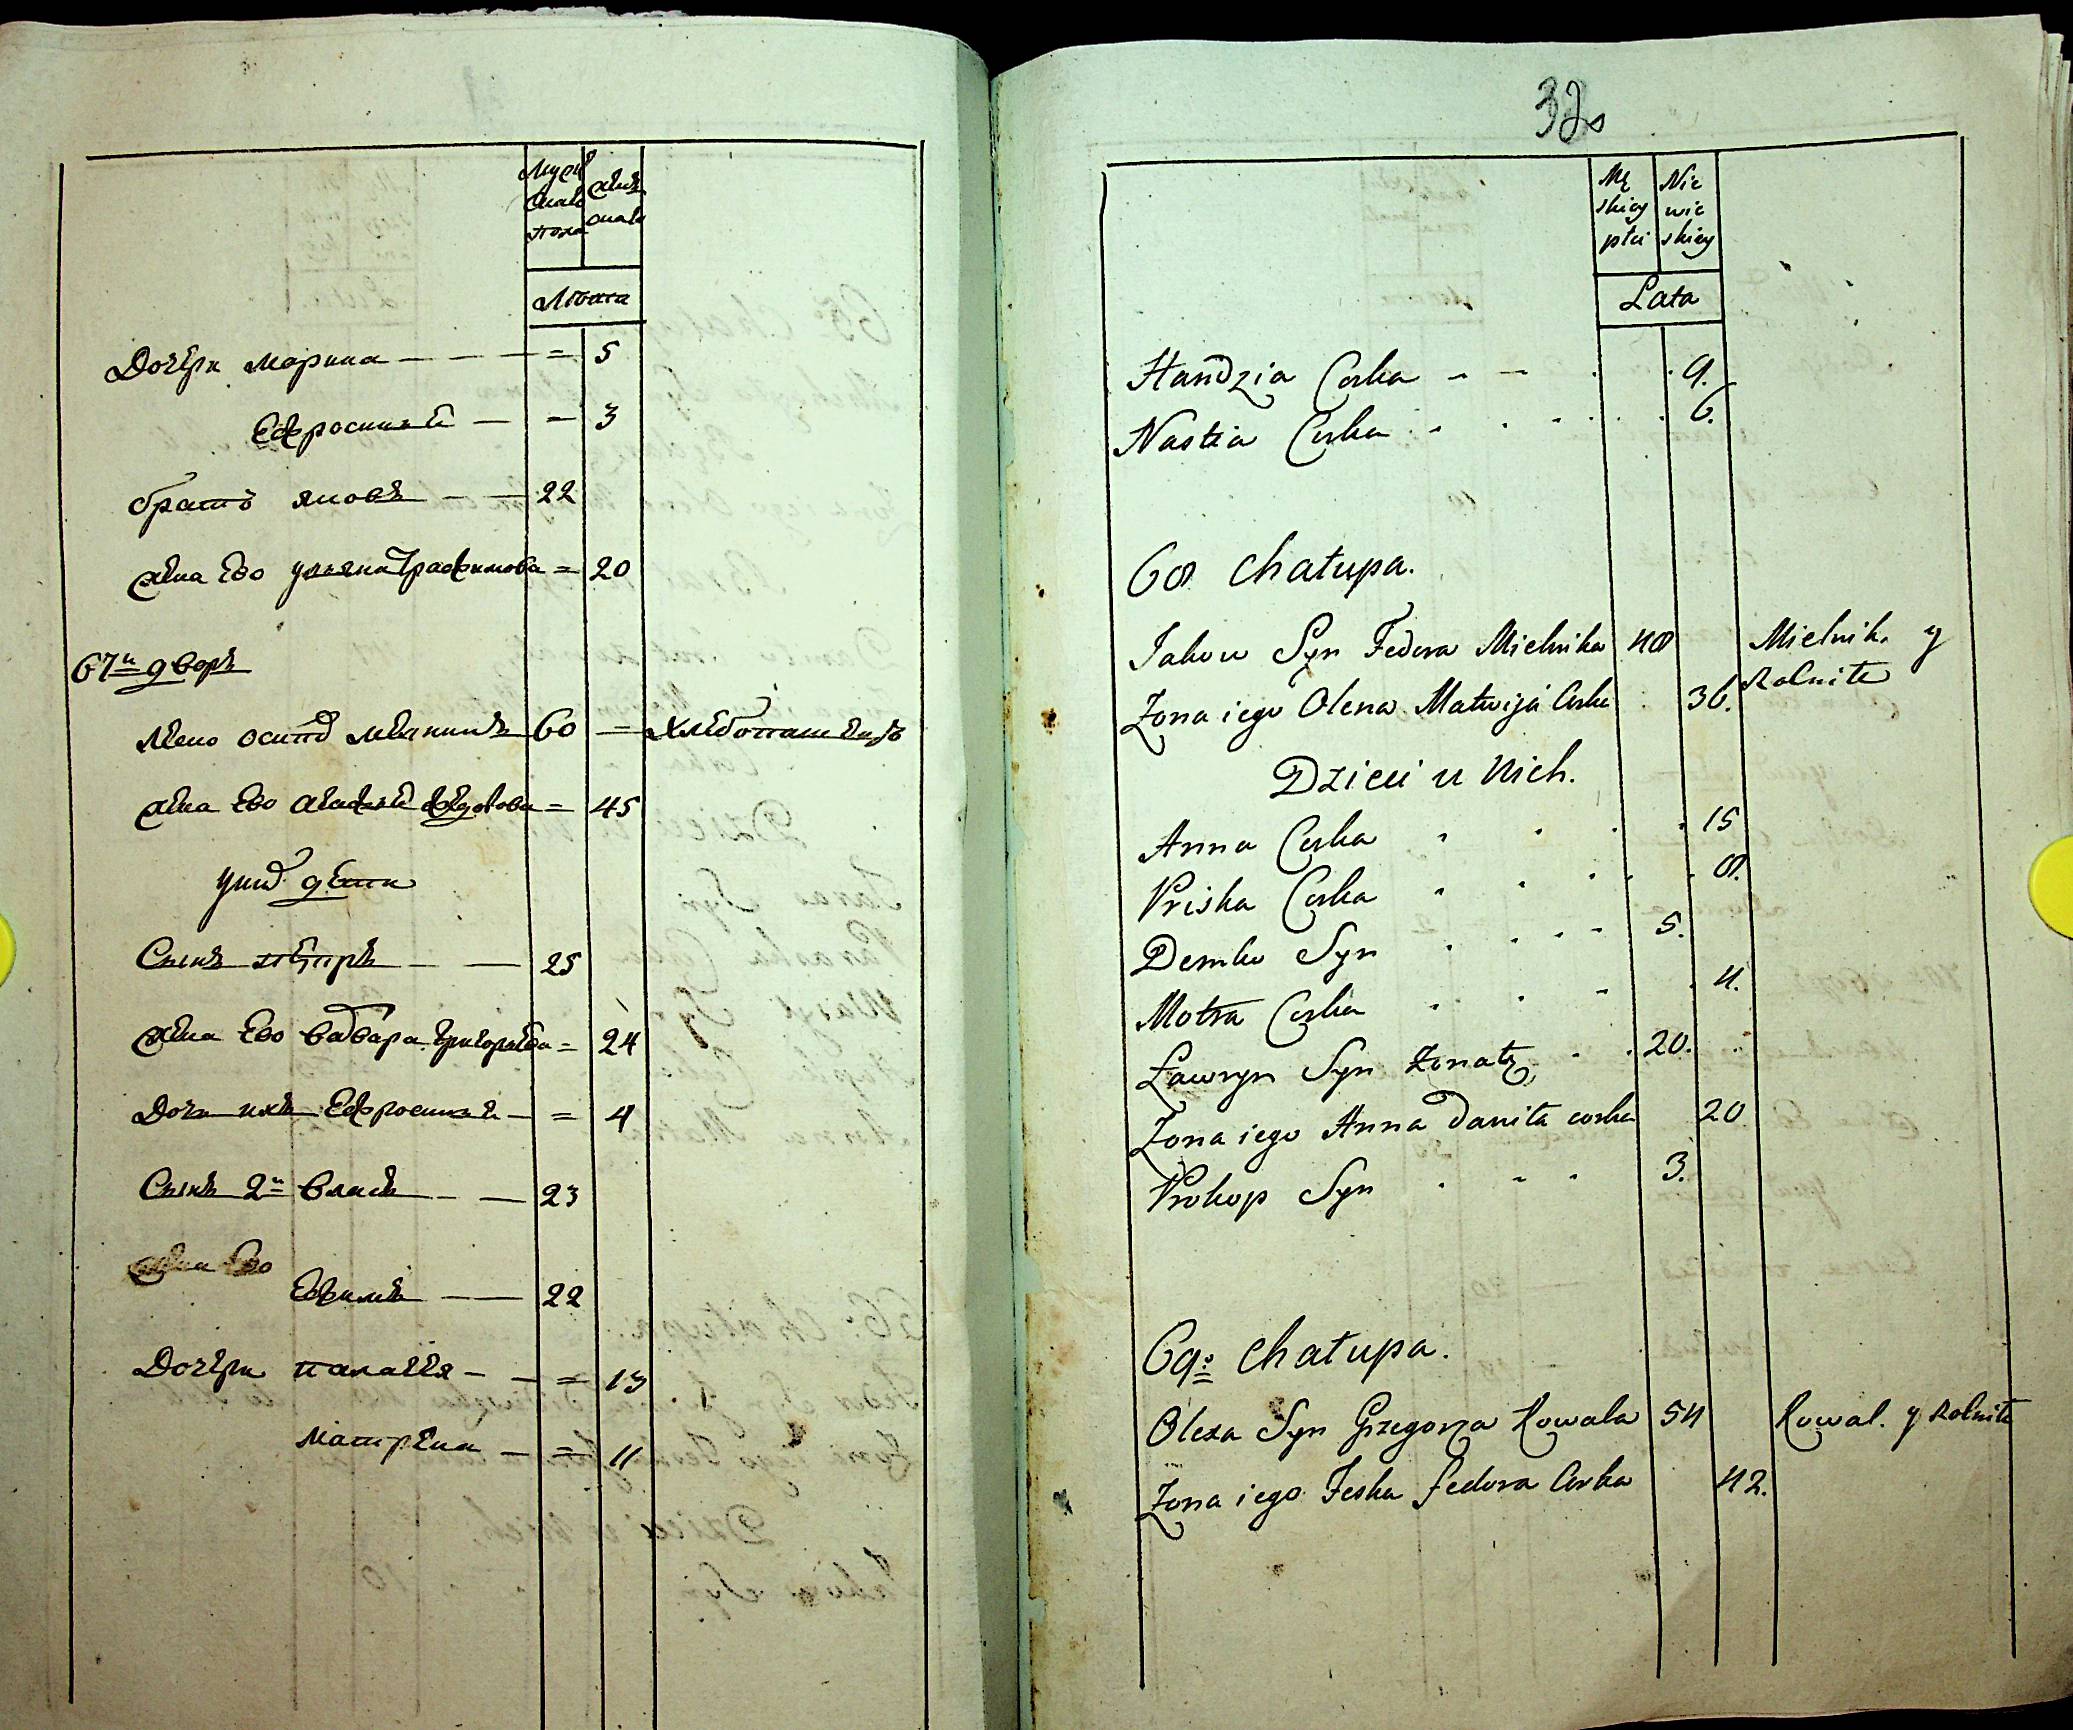 Мужеска пола
Женска
Лѣта
Дочери Марина — — — = 5
Ефросинія — = 3
братъ яковъ — — 22
жена Ево ульяна Трафимова = 20
67й дворъ
осипъ 60 — хлѣбопашецъ
жена Ево = 45
у них дѣти
Сынъ петръ — — 25
жена Ево варвара григорьева = 24
Дочь ихъ Ефросинія — = 4
Сынъ 2й власъ — — 23
жена Ево
Ефимъ —— 22
Дочери палагея — — = 13
Матрена — = 11
32
Męskiey płci
Niewieskiey
Lata
Handzia Corka 9.
Nastia Corka 6.
68 Chałupa.
Jakow Syn Fedora Mielnika 48 Mielnik y
Rolnik
Zona iego Olena Matwija Corka 36.
Dzieci u Nich.
Anna Corka 15
Priska Corka 8.
Demko Syn 5.
Motra Corka 4.
Ławryn Syn Żonaty 20.
Zona iego Anna Daniła corka 20
Prokop Syn 3.
69: Chałupa.
Olexa Syn Grzegorza Kowala 54 Kowal. y Rolnik
Zona iego Feska fedora Corka 42.